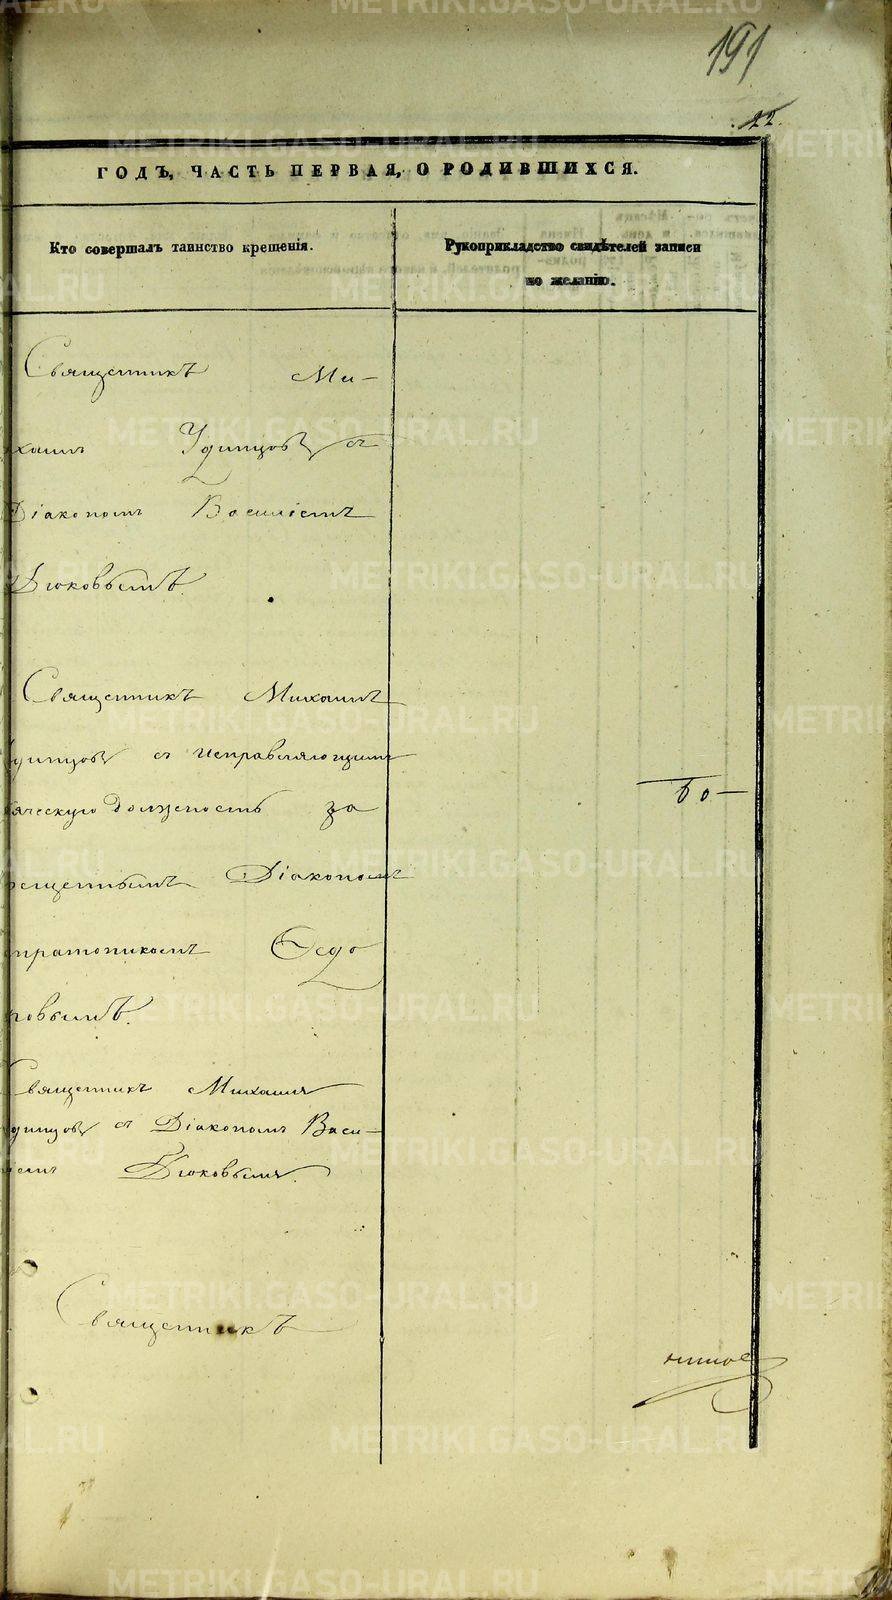 191
22.
ГОДЪ, ЧАСТЬ ПЕРВАЯ, О РОДИВШИХСЯ.
Кто совершалъ таинство крещенія.
Рукоприкладство свидѣтелей записи
по желанію.
Священникъ Ми-
хаилъ Удинцовъ съ
Діакономъ Василіемъ
Бюковымъ.
Священникъ Михаилъ
Удинцовъ съ исправляющимъ
ческую должность за
рещеннымъ Діакономъ
тратоникомъ Ѳедо
ровымъ.
Священникъ Михаилъ
Удинцовъ съ Діакономъ Васи-
ліемъ Бюковымъ.
Священникъ
METRIKI.GASO-URAL.RU